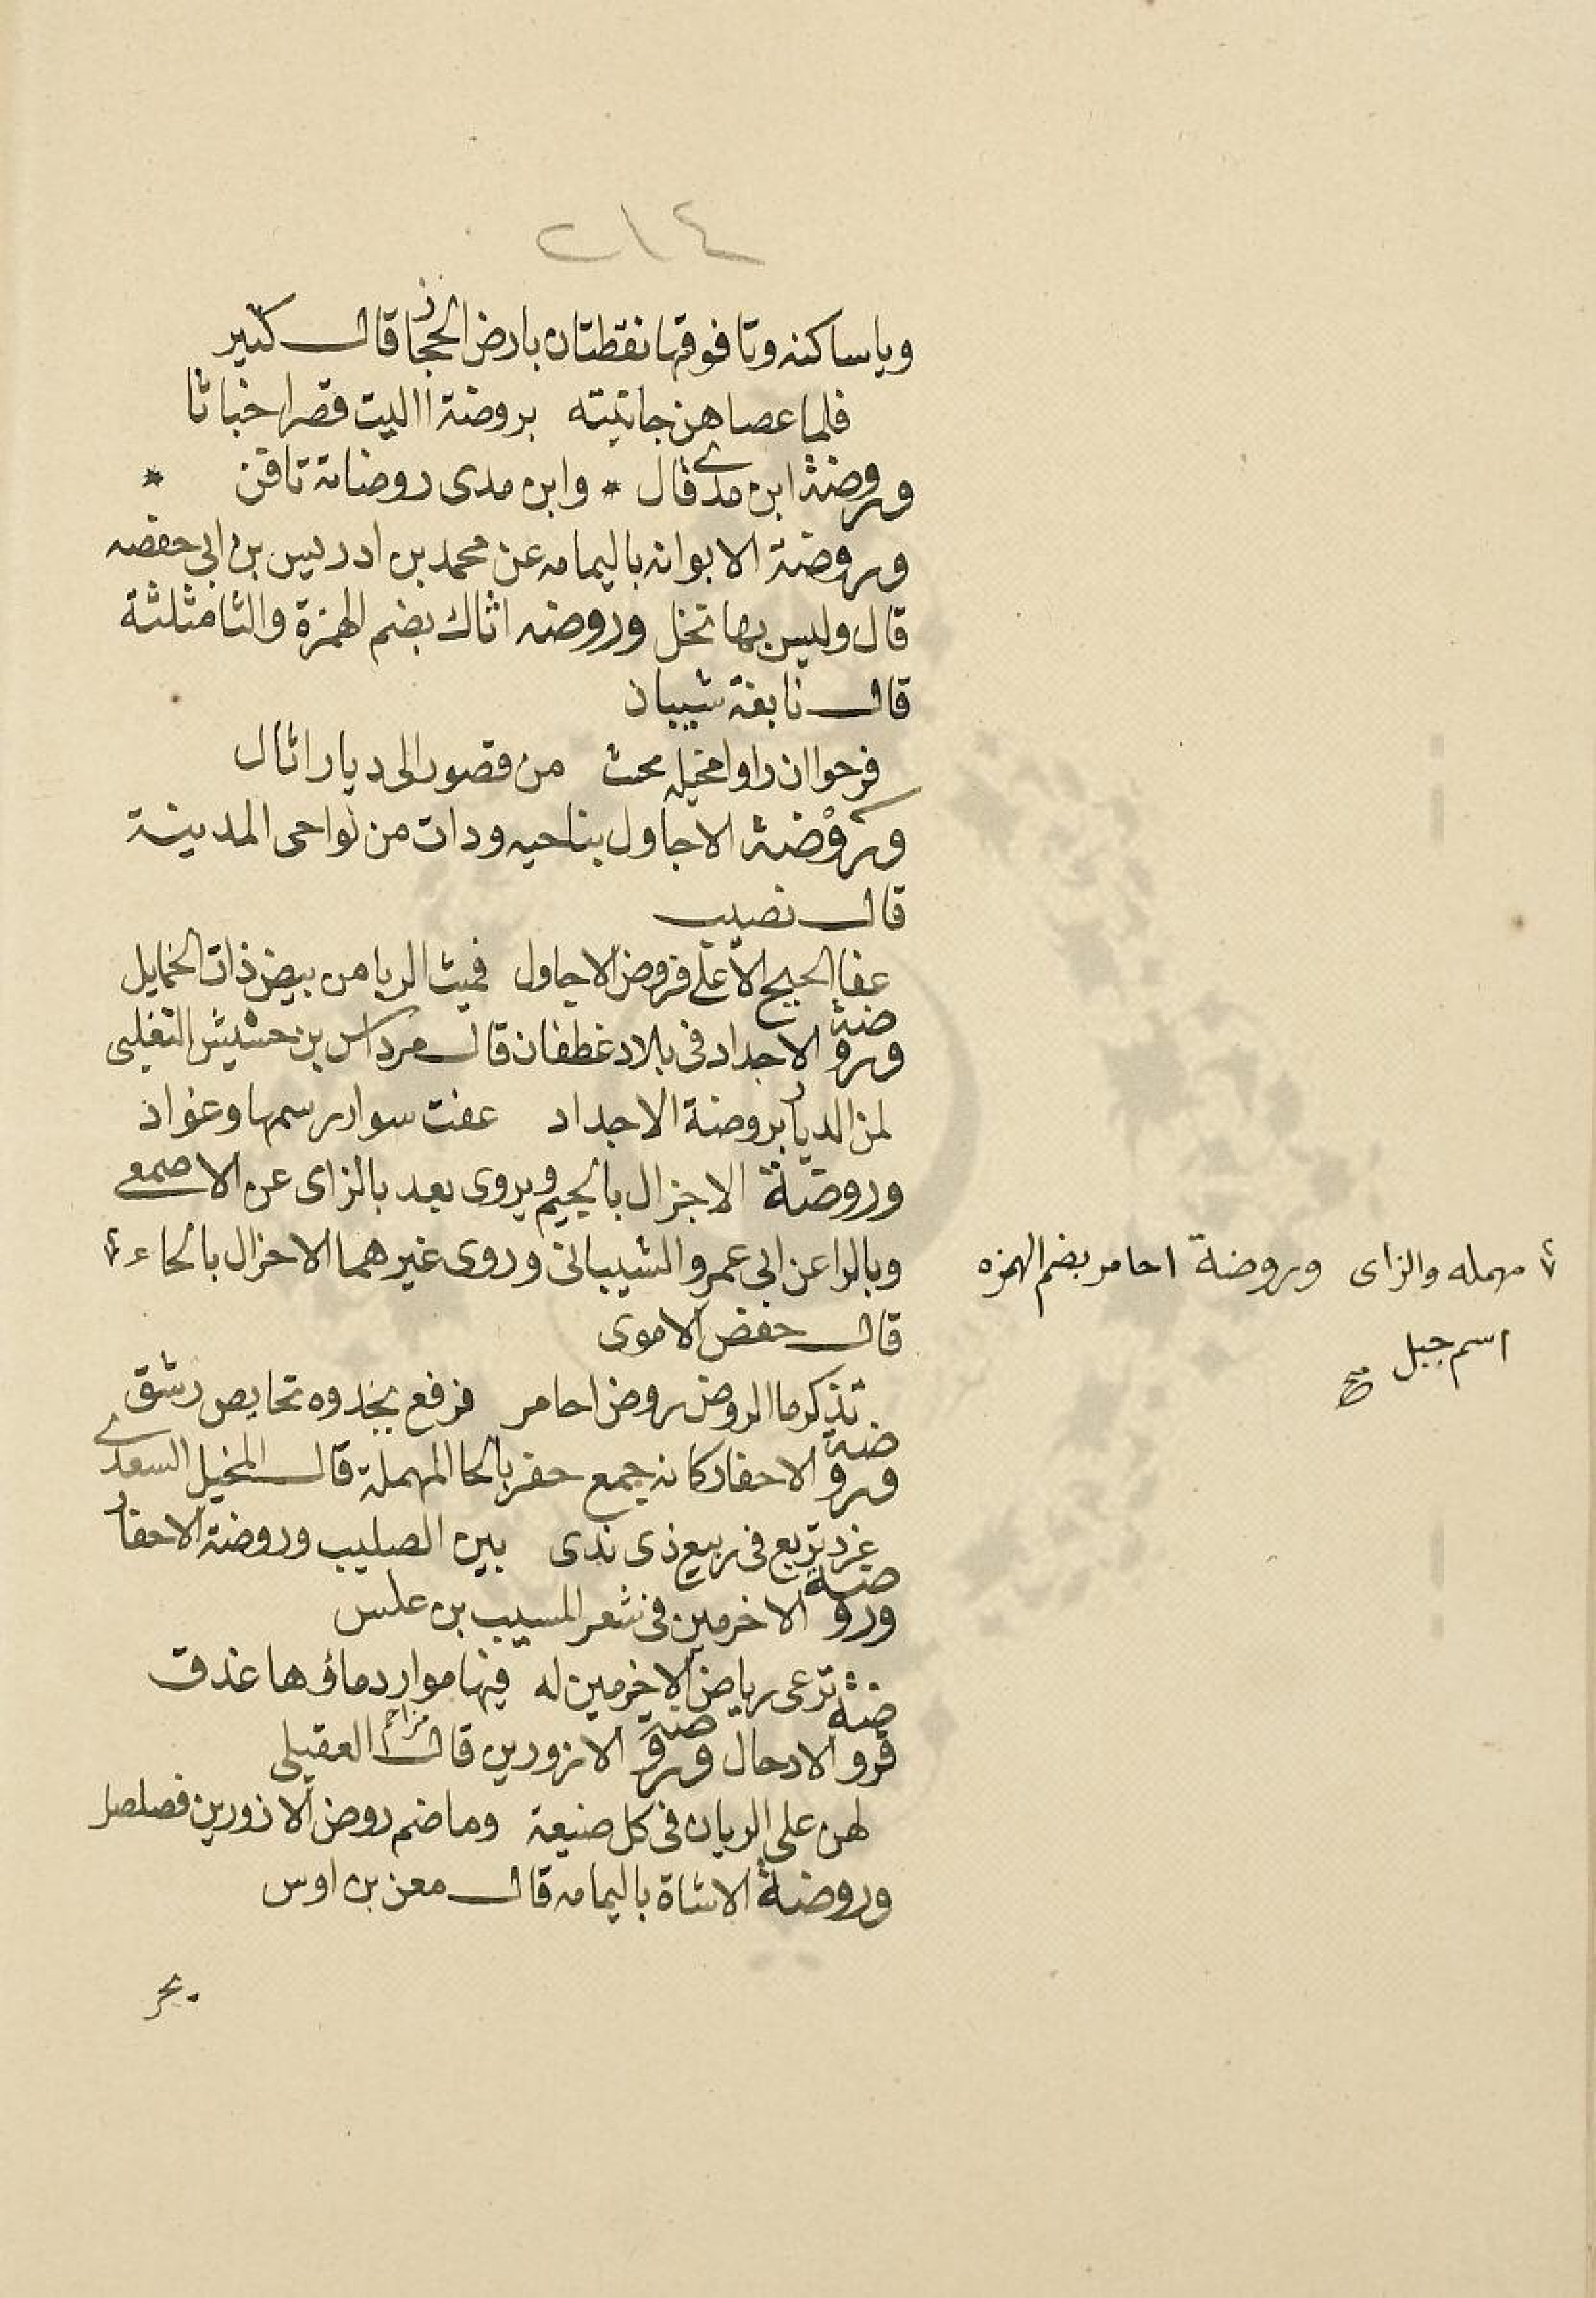 ٢١٤
ويا ساكنه وتا فوقها نقطتان بارض الحجاز قال كثير
فلما عصاهن جانبيته بروضة االيت قصرا خباثا
وروضة ابن مدى قال * وابن مدى روضاته تاقن *
وروضة الابوانه باليمامه عن محمد بن ادريس بن ابي حفصه
قال وليس بها نخل وروضه اثال بضم الهمزة والثا مثلثة
قال نابغة شيبان
فرحوا ان راوا مخيله محت من قصور الى ديار اثال
وروضة الاجاول بناحيه ودات من نواحى المدينة
قال نصيب
عفا الحبج الاعلى فروض الاجاول فميث الربا من بيض ذات الخمايل
وروضة الاجداد فى بلاد غطفان قال مرداس بن حشيش التغلبى
لمن الديار بروضة الاجداد عفت سوار رسمها وغواد
وروضة الاجزال بالجيم ويروى بعد بالزاى عن الاصمعى
وبالرا عن ابى عمرو الشيبانى وروى غيرهما الاحزال بالحاء
مهمله والزاى وروضة احامر بضم الهمزه
اسم جبل صح
قال حفص الاموى
تذكر ما الروض روض احامر فرفع بخدوه تحايص رشق
وروضة الاحفار كانه جمع حفر بالحا المهملة قال المخبل السعدى
غرد تربع فى ربيع ذى ندى بين الصليب وروضة الاحفار
وروضة الاخرمين فى شعر المسيب بن علس
ترعى رياض الاخرمين له فيها موارد ماؤها غدق
وروضة الادحال وروضة الازورين قال مزاحم العقيلى
لهن على الريان فى كل صنيعة وما ضم روض الازورين فصلصل
وروضة الاشاة باليمامه قال معن بن اوس